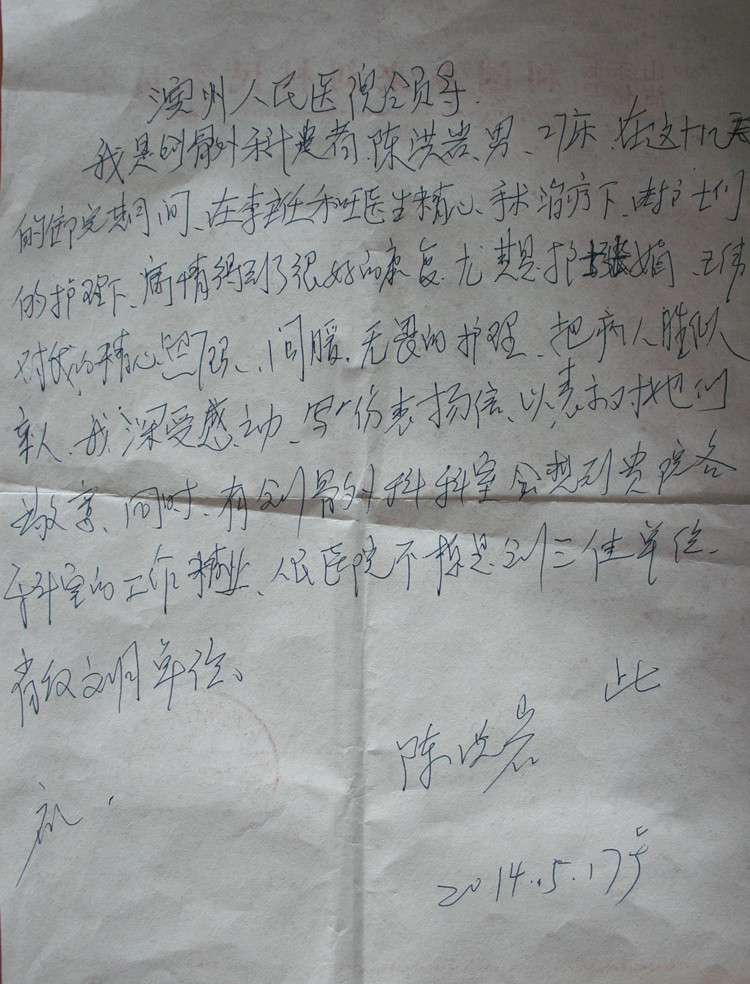 人民医院领导
我是创骨外科患者、陈洪岩、男、27床、在这十几天
的住院期间、在李主任和王医生精心、手术治疗下、由护士们
的护理下、病情得到了很好的康复、尤其是护士张娟、王伟
对我的精心照顾、问暖、无畏的护理、把病人胜似
亲人、我深受感动、写一份表扬信、以表示对她们
敬意、同时、有创骨外科科室会想到贵院各
科室的工作、人民医院不愧是创三佳单位、
省级文明单位、
此
礼、
陈洪岩
2014.5.17号